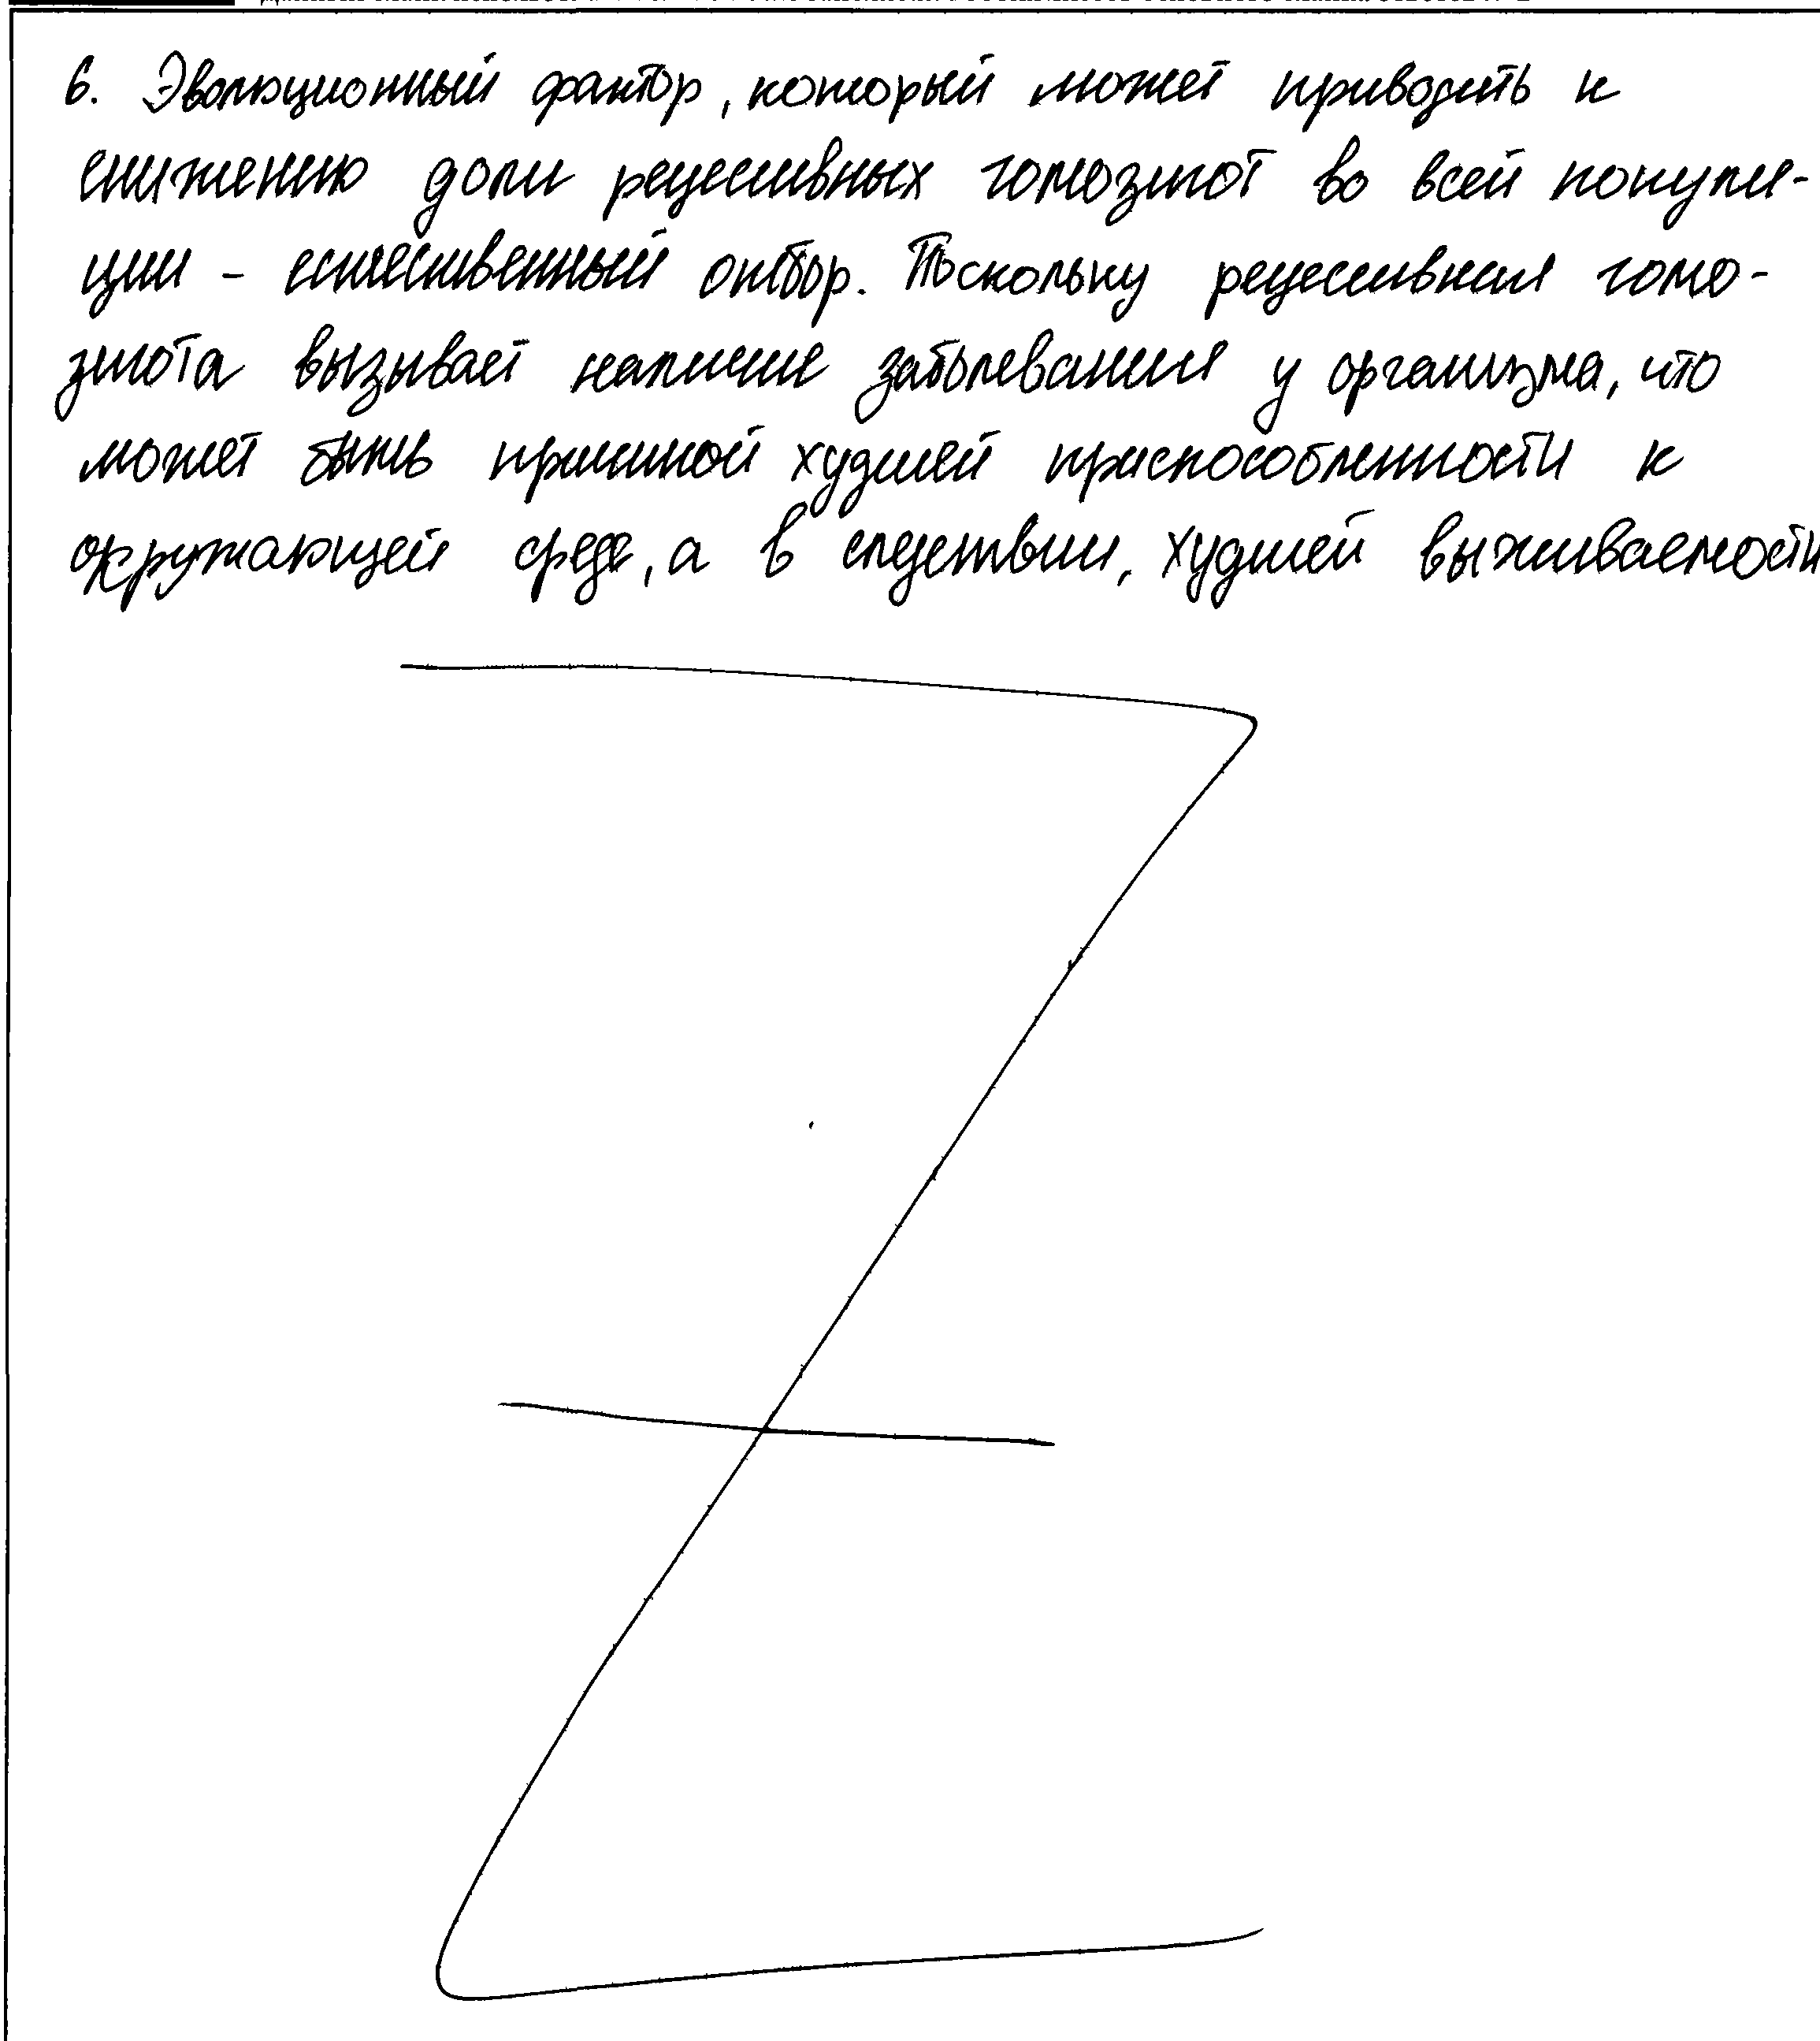 6. Эволюционный фактор, который может приводить к
снижению доли рецессивных гомозигот во всей популя-
ции - естественный отбор. Поскольку рецессивная гомо-
зигота вызывает наличие заболевания у организма, что
может быть причиной худшей приспособленности к
окружающей среде, а в следствии, худшей выживаемости
Z